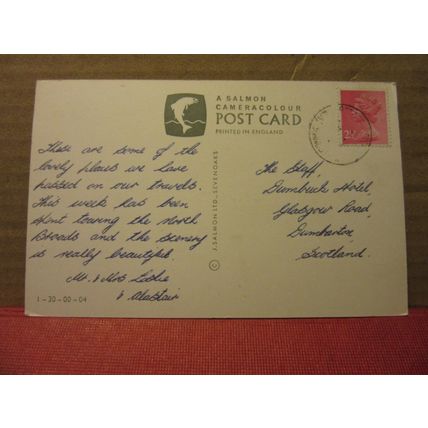 A SALMON
CAMERACOLOUR
POST CARD
PRINTED IN ENGLAND
These are some of the
lovely places we have
passed on our travels.
This week has been
spent touring the North
Broads and the scenery
is really beautiful.
Mr. & Mrs Leslie
& Alastair
1-30-00-04
© J. SALMON LTD., SEVENOAKS
The Staff,
Dumbuck Hotel,
Glasgow Road,
Dumbarton,
Scotland.